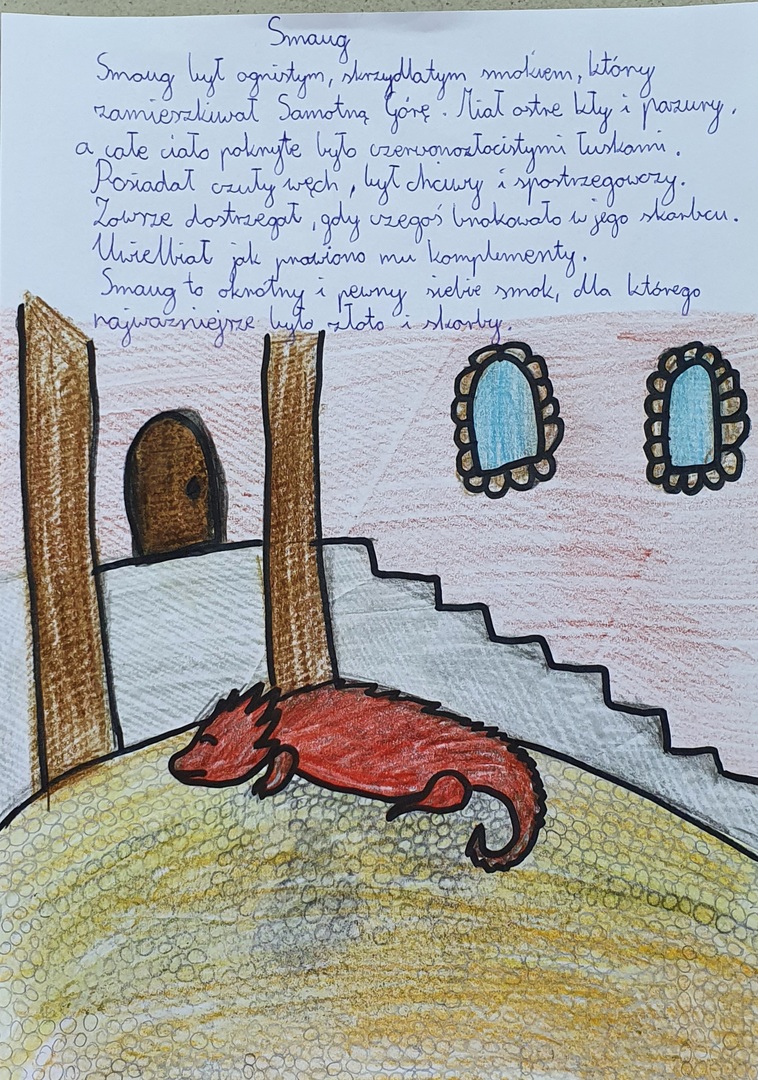 Smaug
Smaug był ognistym, skrzydlatym smokiem, który
zamieszkiwał Samotną Górę. Miał ostre kły i pazury,
a całe ciało pokryte było czerwonozłocistymi łuskami.
Posiadał czuły węch, był chciwy i spostrzegawczy.
Zawsze dostrzegał, gdy czegoś brakowało w jego skarbcu.
Uwielbiał jak prawiono mu komplementy.
Smaug to okrotny i pewny siebie smok, dla którego
najważniejsze było złoto i skarby.